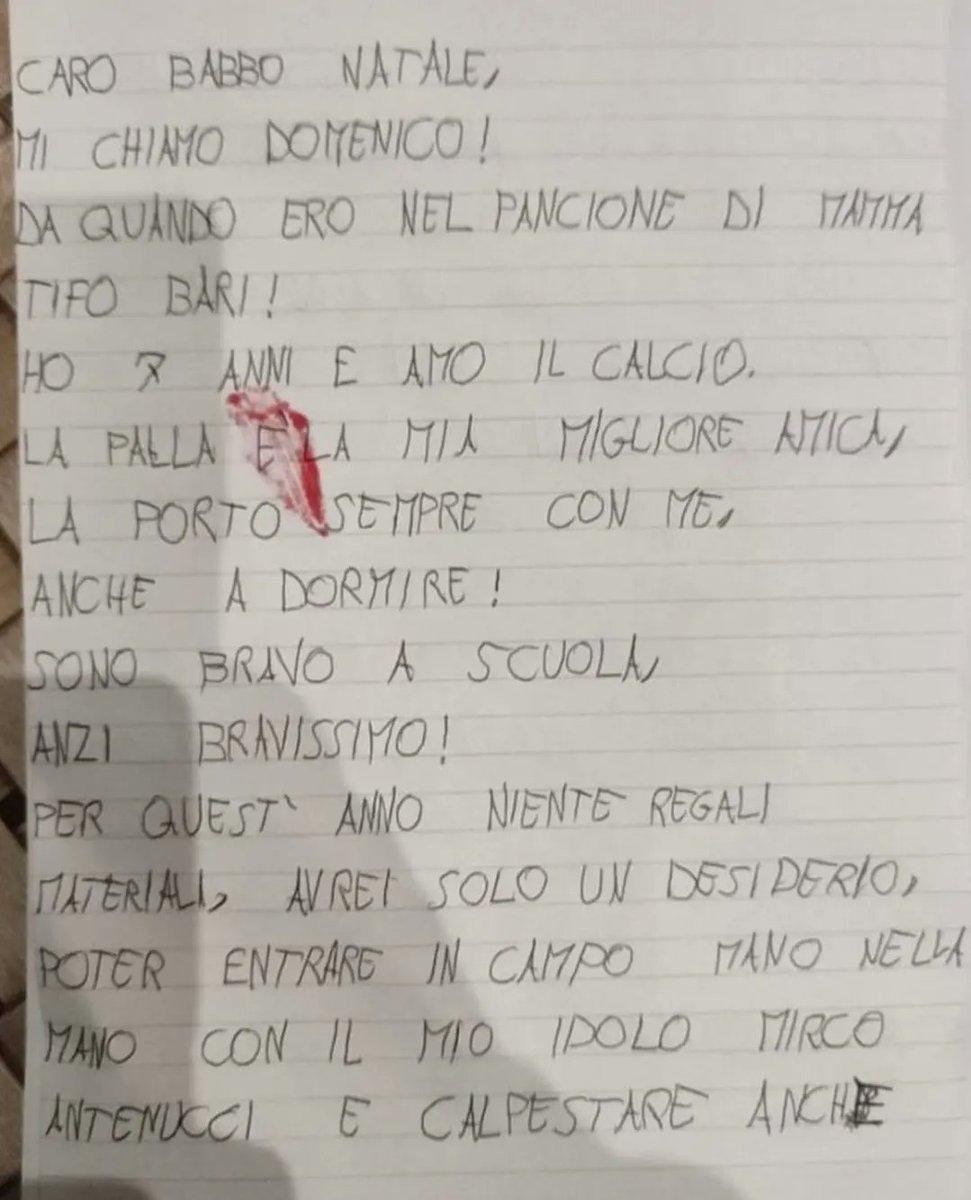 CARO BABBO NATALE,
MI CHIAMO DOMENICO!
DA QUANDO ERO NEL PANCIONE DI MAMMA
TIFO BARI!
HO 7 ANNI E AMO IL CALCIO.
LA PALLA E LA MIA MIGLIORE AMICA,
LA PORTO SEMPRE CON ME,
ANCHE A DORMIRE!
SONO BRAVO A SCUOLA,
ANZI BRAVISSIMO!
PER QUEST' ANNO NIENTE REGALI
MATERIALI, AVREI SOLO UN DESIDERIO,
POTER ENTRARE IN CAMPO MANO NELLA
MANO CON IL MIO IDOLO MIRCO
ANTENUCCI E CALPESTARE ANCHE